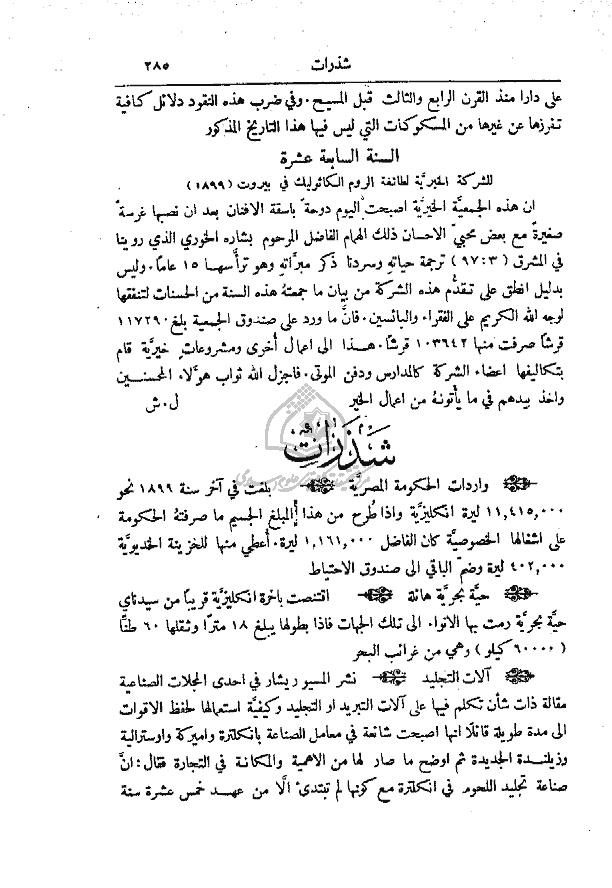 شذرات ٢٨٥
على دارا منذ القرن الرابع والثالث قبل المسيح. وفي ضرب هذه النقود دلائل كافية
تفرزها عن غيرها من المسكوكات التي ليس فيها هذا التاريخ المذكور
السنة السابعة عشرة
للشركة الخيريَّة لطائفة الروم الكاثوليك في بيروت (١٨٩٩)
ان هذه الجمعيَّة الخيريَّة اصبحت اليوم دوحةً باسقة الافنان بعد ان نصبها غرسةً
صغيرةً مع بعض محبي الاحسان ذلك الهمام الفاضل المرحوم بشاره الخوري الذي روينا
في المشرق (٩٧:٣) ترجمة حياته وسردنا ذكر مبرَّاته وهو ترأَّسها ١٥ عاماً. وليس
بدليل انطق على تقدُّم هذه الشركة من بيان ما جمعتهُ هذه السنة من الحسنات لتنفقها
لوجه الله الكريم على الفقراء والبائسين. فانَّ ما ورد على صندوق الجمعية بلغ ١١٧٢٩٠
قرشاً صرفت منها ١٠٣٦٤٢ قرشاً. هذا الى اعمال أخرى ومشروعات خيريَّة قام
بتكاليفها اعضاء الشركة كالمدارس ودفن الموتى. فاجزل الله ثواب هؤلاء المحسنين
واخذ بيدهم في ما يأتونهُ من اعمال الخير ل. ش
شذرات
واردات الحكومة المصريَّة بلغت في آخر سنة ١٨٩٩ نحو
١١,٤١٥,٠٠٠ ليرة انكليزيَّة واذا طُرح من هذا المبلغ الجسيم ما صرفتهُ الحكومة
على اشغالها الخصوصيَّة كان الفاضل ١,١٦١,٠٠٠ ليرة. أعطي منها للخزينة الخديويَّة
٤٠٢,٠٠٠ ليرة وضمّ الباقي الى صندوق الاحتياط
حيَّة بحريَّة هائلة اقتنصت باخرة انكليزيَّة قريباً من سيدناي
حيَّة بحريَّة رمت بها الانواء الى تلك الجهات فاذا بطولها يبلغ ١٨ متراً وثقلها ٦٠ طنًّا
(٦٠٠٠٠ كيلو) وهي من غرائب البحر
آلات التجليد نشر المسيو ريشار في احدى المجلات الصناعية
مقالة ذات شأن تكلم فيها على آلات التبريد او التجليد وكيفيَّة استعمالها لحفظ الاقوات
الى مدة طويلة قائلًا انها اصبحت شائعة في معامل الصناعة بانكلترة واميركة واوسترالية
وزيلندة الجديدة ثم اوضح ما صار لها من الاهمية والمكانة في التجارة فقال: انَّ
صناعة تجليد اللحوم في انكلترة مع كونها لم تبتدئ الَّا من عهد خمس عشرة سنة